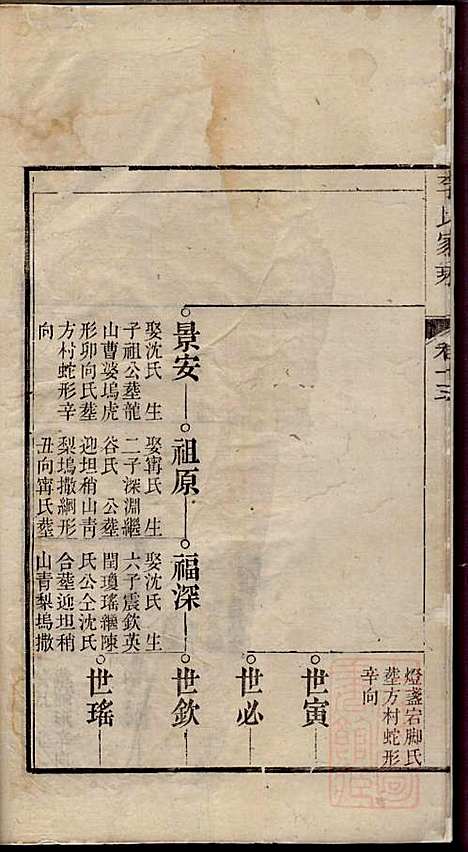 李氏家乘
卷十三
燈盞宕脚氏
塟方村蛇形
辛向
世寅
世必
景安
娶沈氏 生
子祖公塟龍
山曹婆塢虎
形卯向氏塟
方村蛇形辛
向
祖原
娶甯氏 生
二子深淵繼
谷氏 公塟
迎坦稍山靑
梨塢撒網形
丑向甯氏塟
福深
娶沈氏 生
六子震欽英
閏瓊瑤繼陳
氏公仝沈氏
合塟迎坦稍
山青梨塢撒
世欽
世瑤